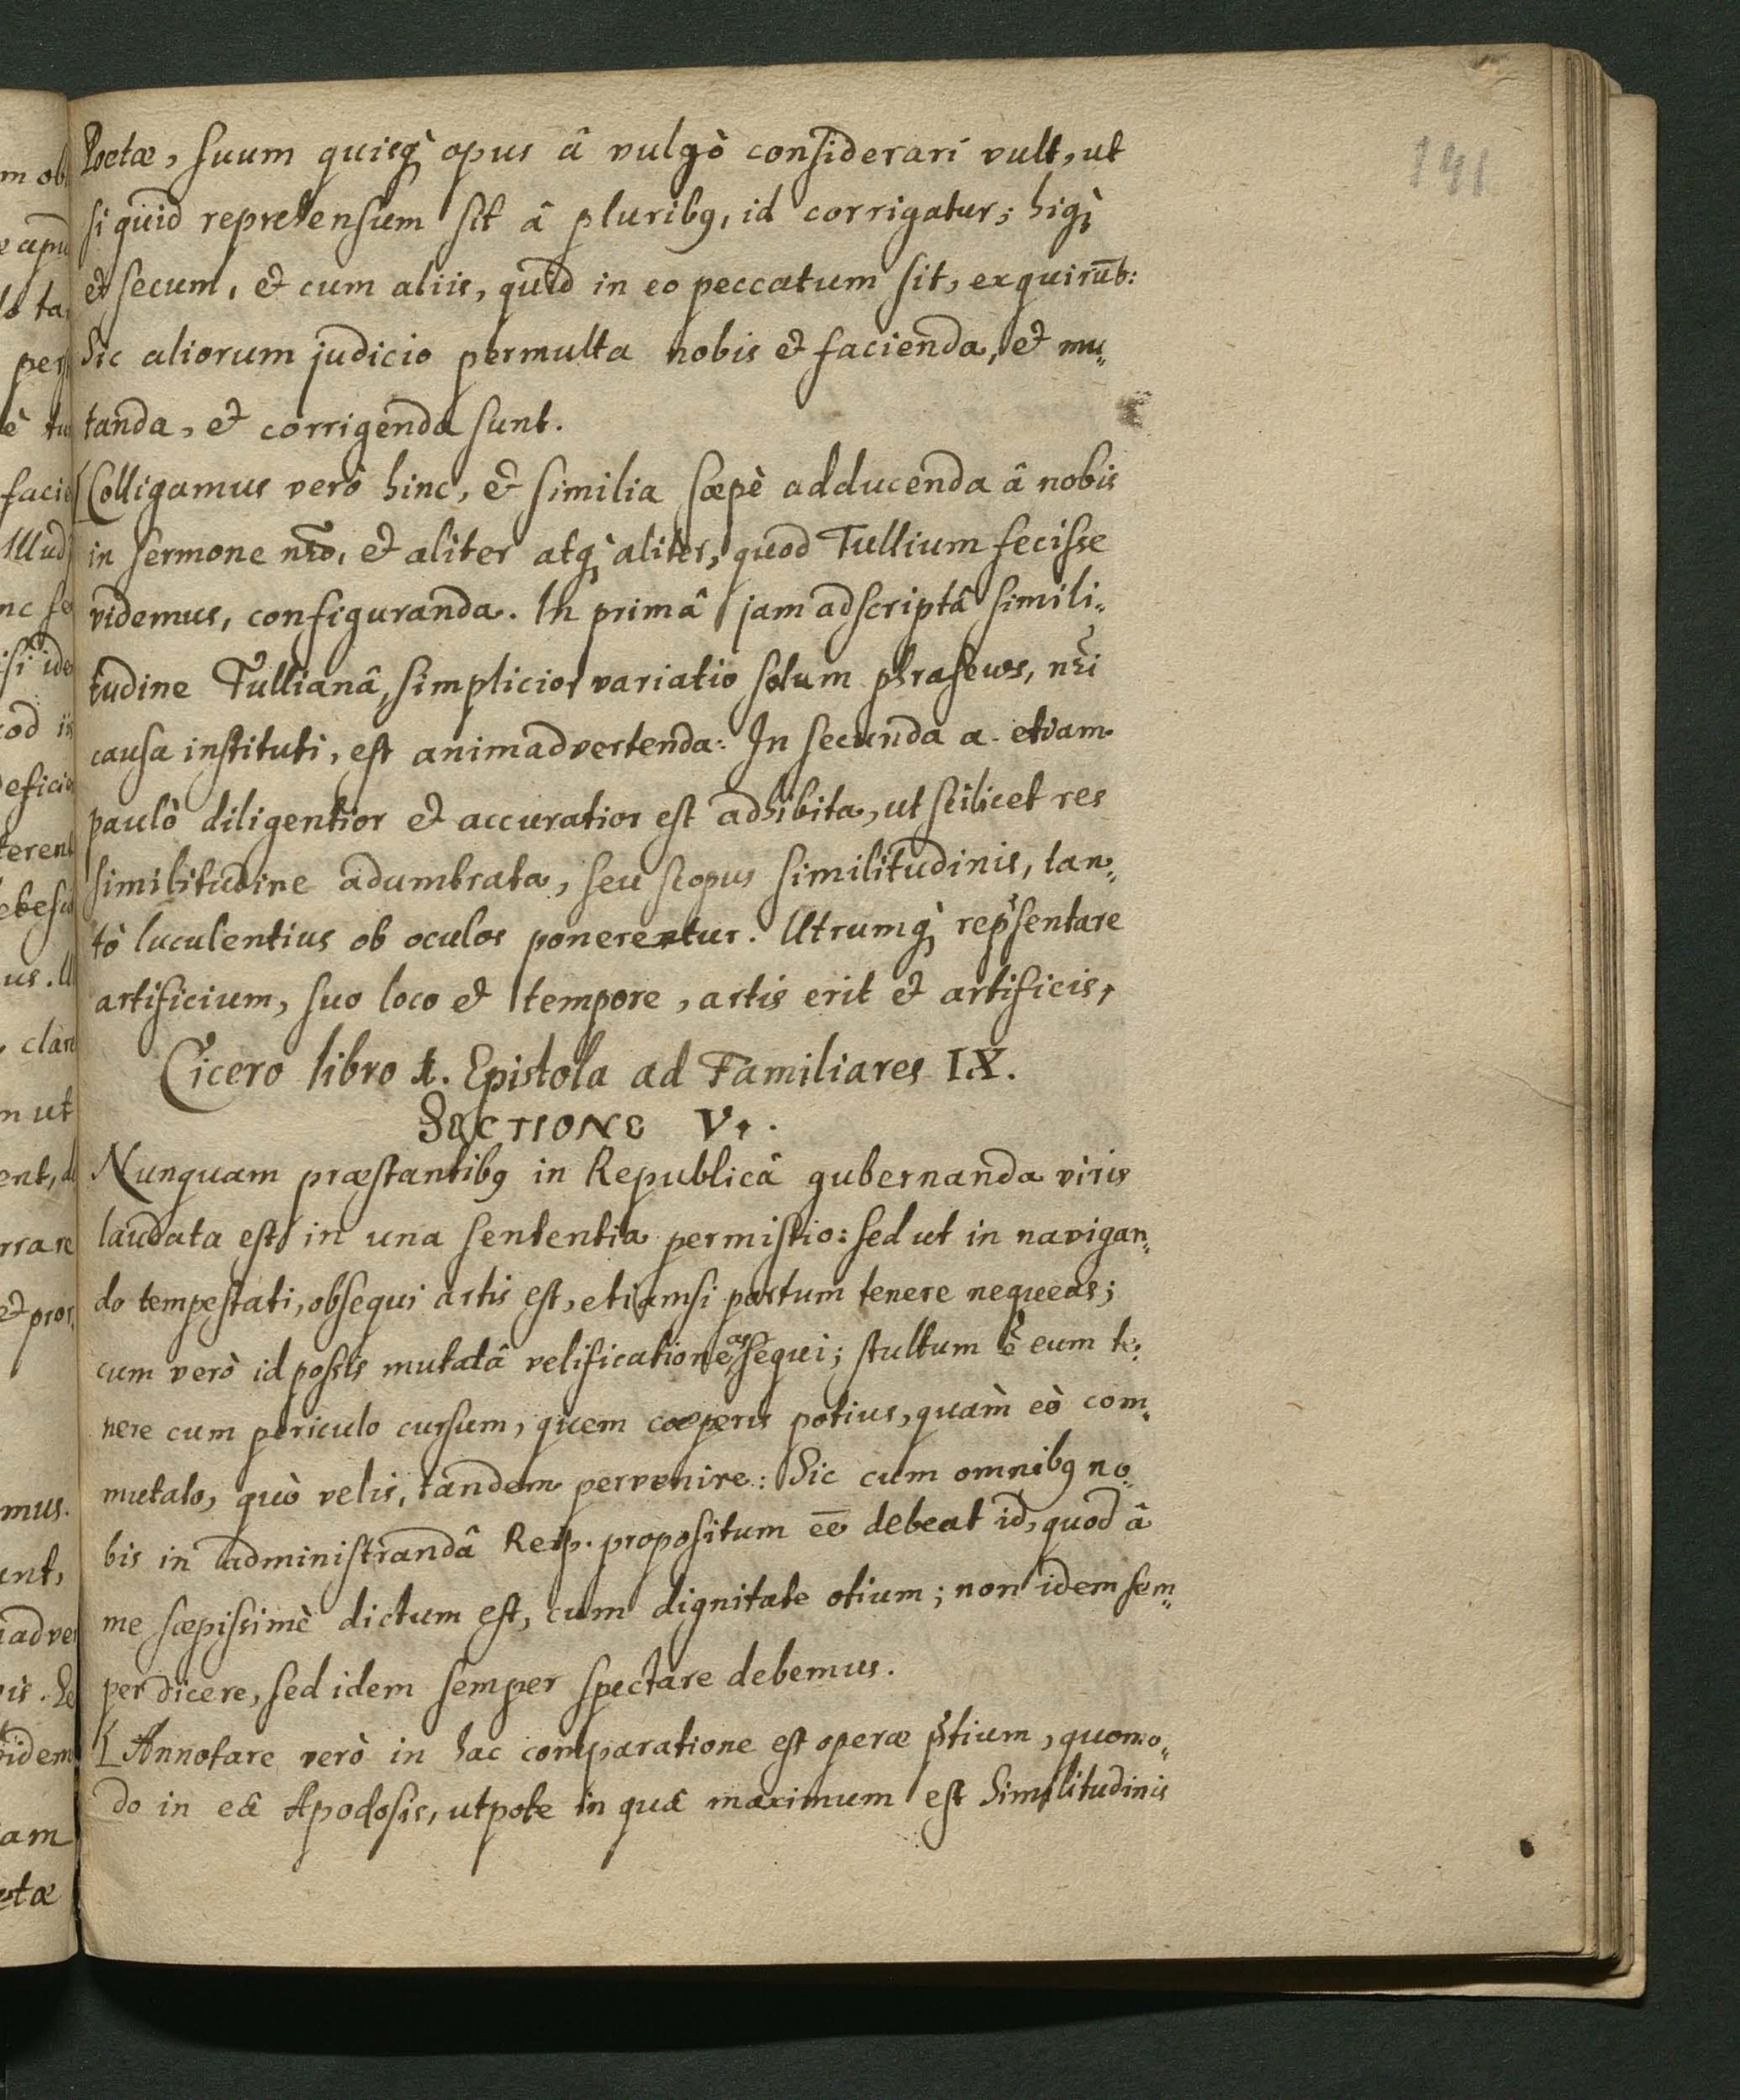 141
Poetæ, suum quisq; opus â vulgò considerari vult, ut
si quid reprehensum sit â pluribꝯ, id corrigatur; hiq;
et secum, et cum aliis, quid in eo peccatum sit, exquirūt:
Sic aliorum judicio permulta nobis et facienda, et mu„
tanda, et corrigenda sunt.
[Colligamus verò hinc, et similia sæpè adducenda â nobis
in sermone nr̃o, et aliter atq; aliter, quod Tullium fecisse
videmus, configuranda. In primâ jam adscriptâ simili„
tudine Tullianâ, simplicior variatio solum phraseως, nr̃i
causa instituti, est animadvertenda: In secunda a. etiam
paulò diligentior et accuratior est adhibita, ut scilicet res
similitudine adumbrata, seu scopus similitudinis, tan„
tò luculentius ob oculos ponerentur. Utrumq; rep̃sentare
artificium, suo loco et tempore, artis erit et artificis,
Cicero libro 1. Epistola ad Familiares IX.
SECTIONE V.
Nunquam præstantibꝯ in Republicâ gubernanda viris
laudata est in una sententia permistio: sed ut in navigan„
do tempestati, obsequi artis est, etiamsi portum tenere nequeas;
cum verò id possis mutatâ velificatione assequi; stultum ẽ eum te„
nere cum periculo cursum, quem cœperis potius, quàm eò com„
mutato, quò velis, tandem pervenire: Sic cum omnibꝯ no„
bis in administrandâ Reip. propositum eē debeat id, quod â
me sæpissimè dictum est, cum dignitate otium; non idem sem„
per dicere, sed idem semper spectare debemus.
[Annotare verò in hac comparatione est operæ p̃tium, quomo„
do in eâ Apodosis, utpote in quâ maximum est similitudinis